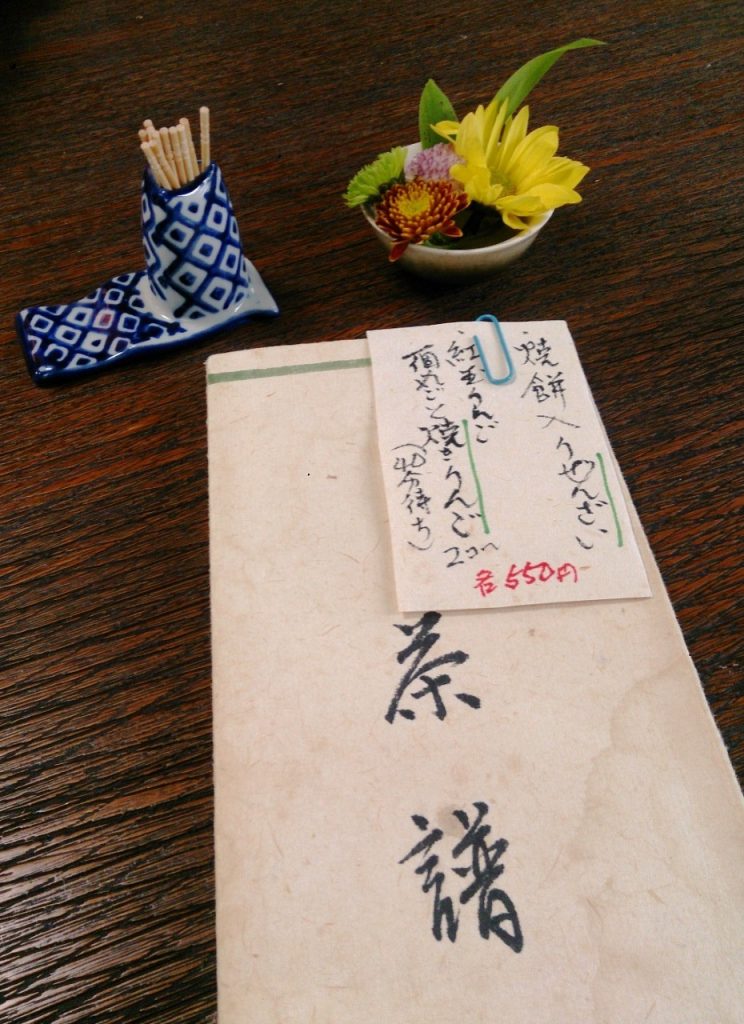 焼餅入りぜんざい
紅玉りんご
一個丸ごと焼きりんご
(40分待ち)
各550円
茶譜